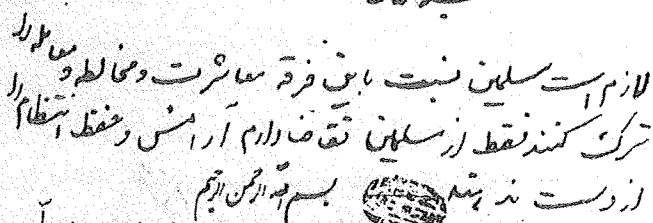 لازم است مسلمین نسبت باین فرقه معاشرت و مخالطه و معامله را
ترک کنند فقط از مسلمین تقاضا دارم آرامش و حفظ انتظام را
از دست ندهند
بسم الله الرحمن الرحیم